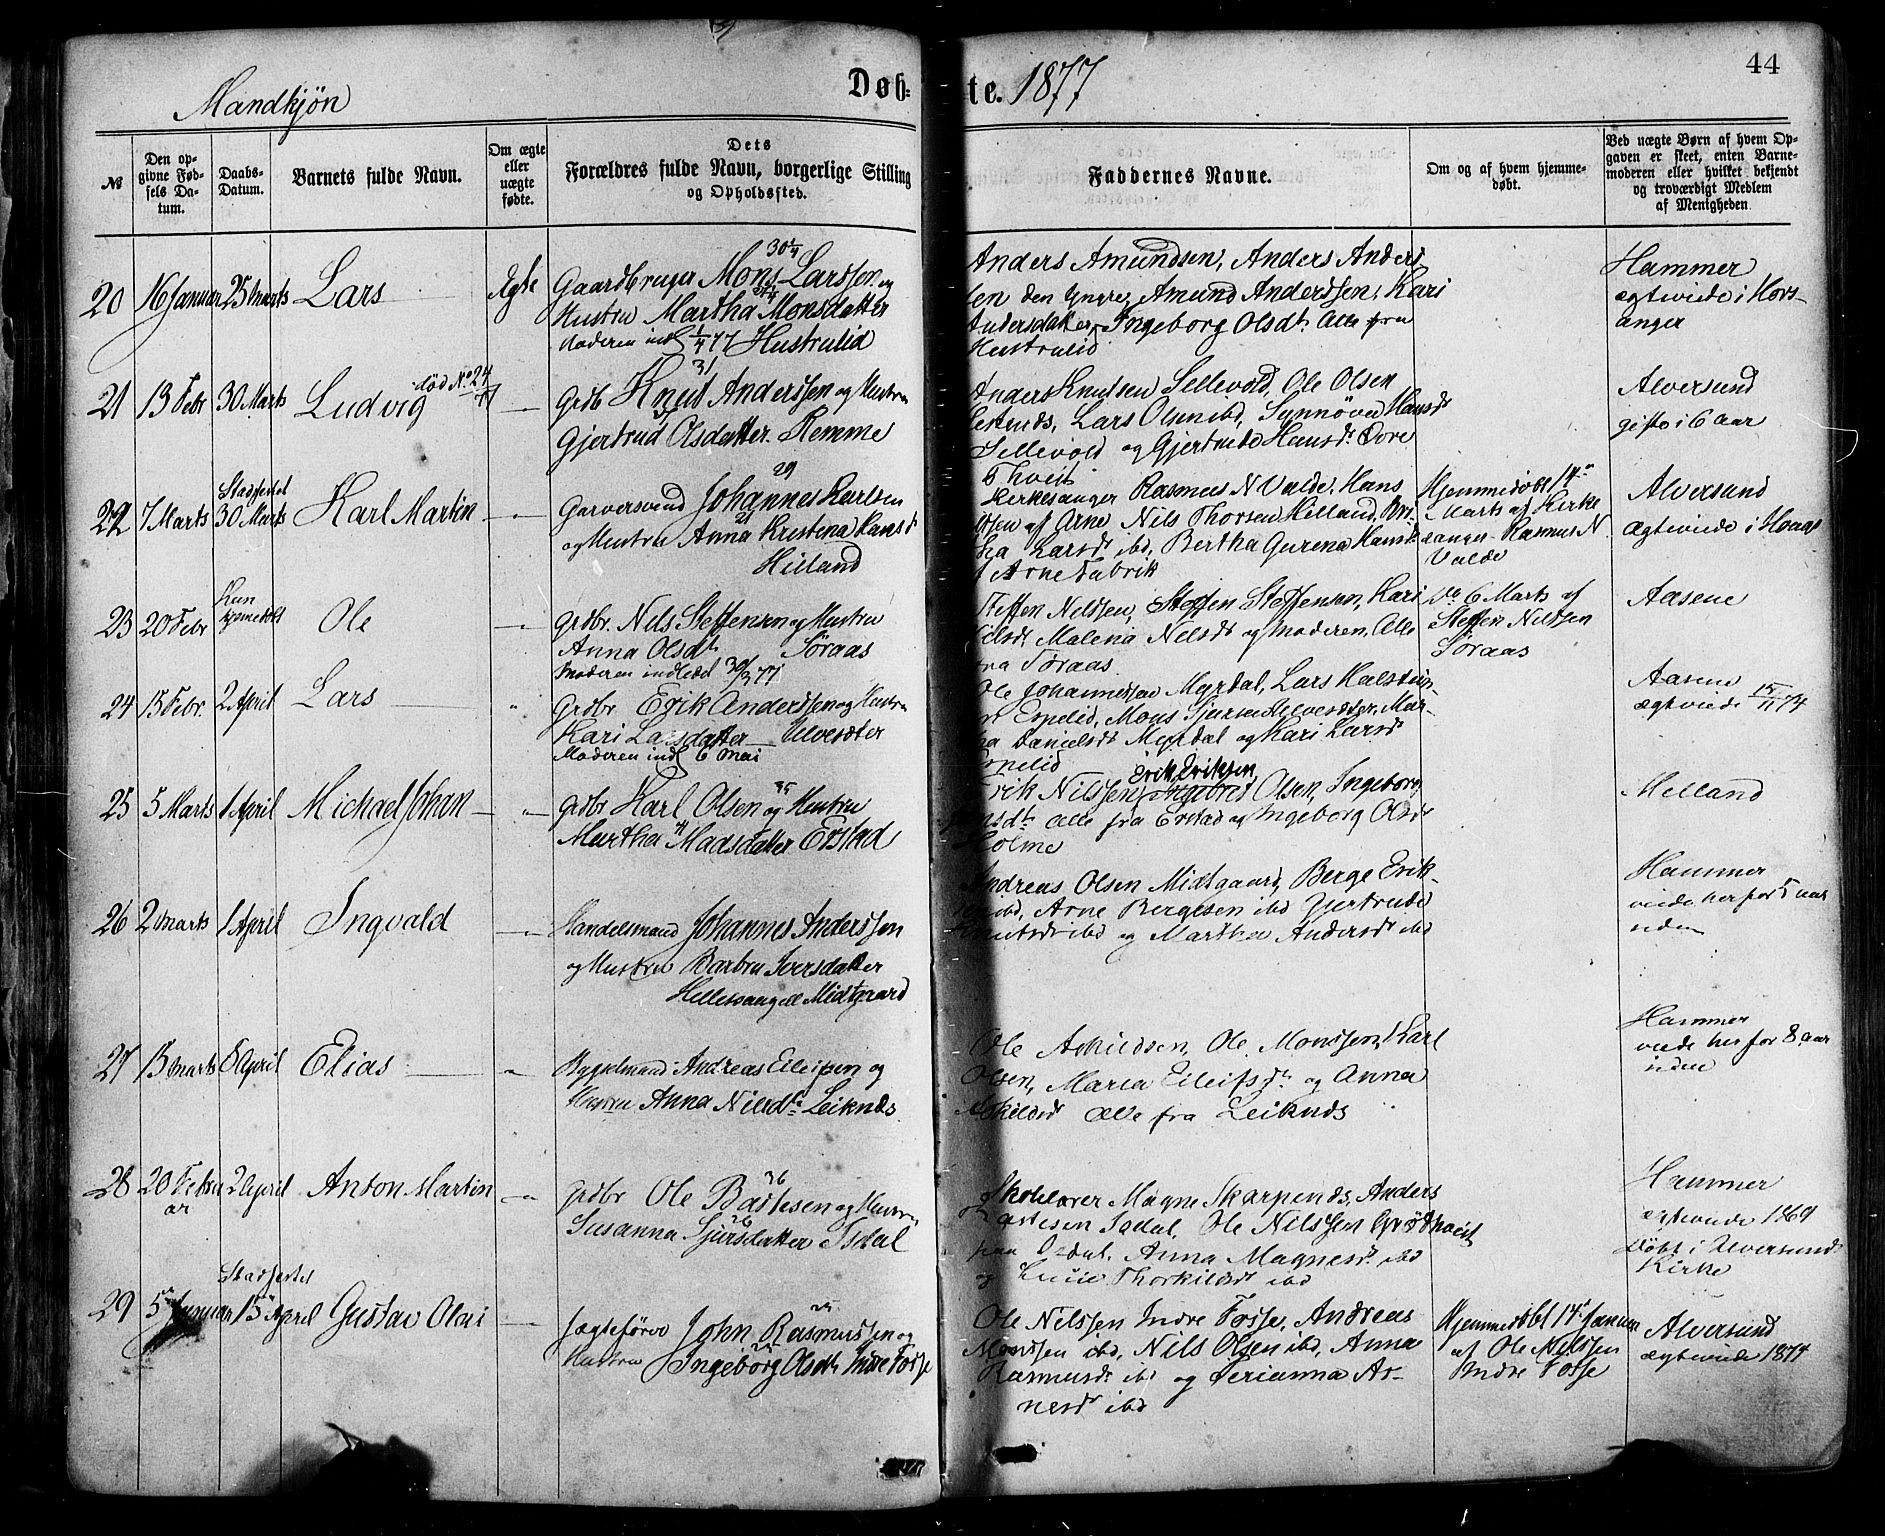 44
Mandkjøn
Døb=
te. 1877
№
Den op-
givne Fød-
sels Da-
tum.
Daabs-
Datum.
Barnets fulde Navn.
Om ægte
eller
uægte
fødte.
Dets
Forældres fulde Navn, borgerlige Stilling
og Opholdssted.
Faddernes Navne.
Om og af hvem hjemme-
døbt.
Ved uægte Børn af hvem Op-
gaven er skeet, enten Barne-
moderen eller hvilket bekjendt
og troværdigt Medlem
af Menigheden
20 16 Januar 25 Marts Lars Ægte
Gaardbruger Mons Larssen og
Hustru Martha Monsdatter
Moderen indl 1/4 77 Hustrulid
Anders Amundsen, Anders Anders
sen den Yngre, Amund Anderssen, Kari
Andersdatter, Ingeborg Olsdt. Alle fra
Hustrulid
Hammer
ægteviede i Hors-
anger
21 13 Febr 30 Marts Ludvig død No 24
31
Grdb Knud Anderssen og Hustru
Gjertrud Olsdatter. Remme
Anders Knutsen Sellevold, Ole Olsen
Lars Olsen ibd, Synnøve Hansdt
Sellevold og Gjertrude Hansdt. Øvre
Thveit
Alversund
gifte i 6 aar
22 7 Marts
Stadfestet
30 Marts Karl Martin
29
Garversvend Johannes Karlsen
og Hustru Anna Kristina Hansdt
Hilland
Kirkesanger Rasmus N Valde, Hans
af Arne Nils Thorsen Hilland, Bri-
tha Larsdt ibd, Bertha Gurena Hansdt
Arne Fabrik
Hjemmedøbt 14de
Marts af Kirke
sanger Rasmus N
Valde
Alversund
ægteviede i Haus
23 20 Febr
Kun
hjemmedøbt
Ole
Grdbr. Nils Steffensen og Hustru
Anna Olsdt. Søraas
Moderen indledet 30/3 77
Steffen Nilssen, Steffen Steffensen, Kari
Nilsdt, Malena Nilsdt og Moderen, Alle
fra Søraas
6 Marts af
Steffen Nilssen
Søraas
Aasene
24 15 Febr. 2 April Lars
Grdbr Erik Anderssen og Hustru
Kari Larsdatter Ulvesæter
Moderen indl 6 Mai
Ole Johannessen Myrdal, Lars Halstein-
sen Espelid, Mons Sjursen Ulvesæter, Mar-
tha Danielsdt Myrdal og Kari Larsdt
Espelid
Aasene
ægteviede 15/11 74
25 5 Marts 1 April Michael Johan
35
Grdbr Karl Olsen og Hustru
Martha Madsdatter Erstad
Erik Eriksen,
Erik Nilssen, Olsen, Ingeborg
alle fra Erstad og Ingeborg Olsdt
Holme
Melland
26 2 Marts 1 April Ingvald
Handelsmand Johannes Anderssen
og Hustru Barbru Iversdatter
Hellesvaagen Midtgaard
Andreas Olsen Midtgaard, Berge Erik-
sen ibd, Arne Bergesen ibd Gjertrude
Knutsdt ibd og Martha Andersdt ibd
Hammer
viede her for 5 aar
siden
27 13 Marts 8 April Elias
Andreas Eileifsen og
Hustru Anna Nilsdt. Leiknæs.
Ole Askildsen, Ole Monssen, Karl
Olsen, Maria Eileifsdt. og Anna
Askildsdt Alle fra Leiknæs
Hammer
viede her for 8 aar
siden
28 20 Febru
ar
2 April Anton Martin
36
Grdbr Ole Bastesen og Hustru
26
Susanna Sjursdatter Isdal
Skolelærer Magne Skarpenæs, Anders
Bastesen Isdal, Ole Nilssen Grødthveit
Isdal, Anna Magnesdt. ibd
og Lucie Thorkildsdt ibd
Hammer
ægteviede 1869
Døbt i Alversunds
Kirke
29 5 Januar
Stadfestet
15de April Gustav Olai
25
Jægtefører John Rasmussen og
Hustru Ingeborg Olsdt. Indre Fosse
Ole Nilssen Indre Fosse, Andreas
Monssen ibd, Nils Olsen ibd, Anna
Rasmusdt ibd og Serianna Ar-
nesdt ibd
Hjemmedøbt 14de Januar
af Ole Nilssen
Indre Fosse
Alversund
ægteviede 1874